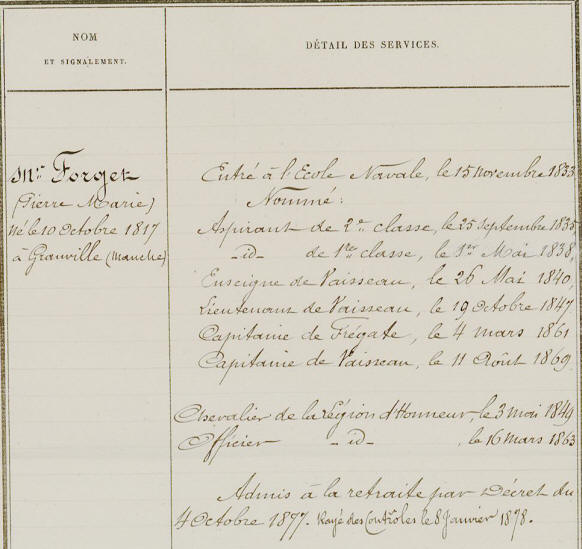 NOM
ET SIGNALEMENT.
DÉTAIL DES SERVICES.
Mr. Forget
(Pierre Marie)
né le 10 Octobre 1817
à Granville (Manche)
Entré à l'Ecole Navale, le 15 novembre 1833
Nommé:
Aspirant de 2e. classe, le 25 Septembre 1835
-id- de 1ère classe, le 1er Mai 1838,
Enseigne de Vaisseau, le 26 Mai 1840,
Lieutenant de Vaisseau, le 19 Octobre 1847
Capitaine de Frégate, le 4 mars 1861
Capitaine de Vaisseau, le 11 Août 1869.
Chevalier de la Légion d'Honneur, le 3 mai 1849
Officier -id- , le 16 Mars 1863
Admis à la retraite par Décret du
4 Octobre 1877. Rayé des Contrôles le 8 Janvier 1878.